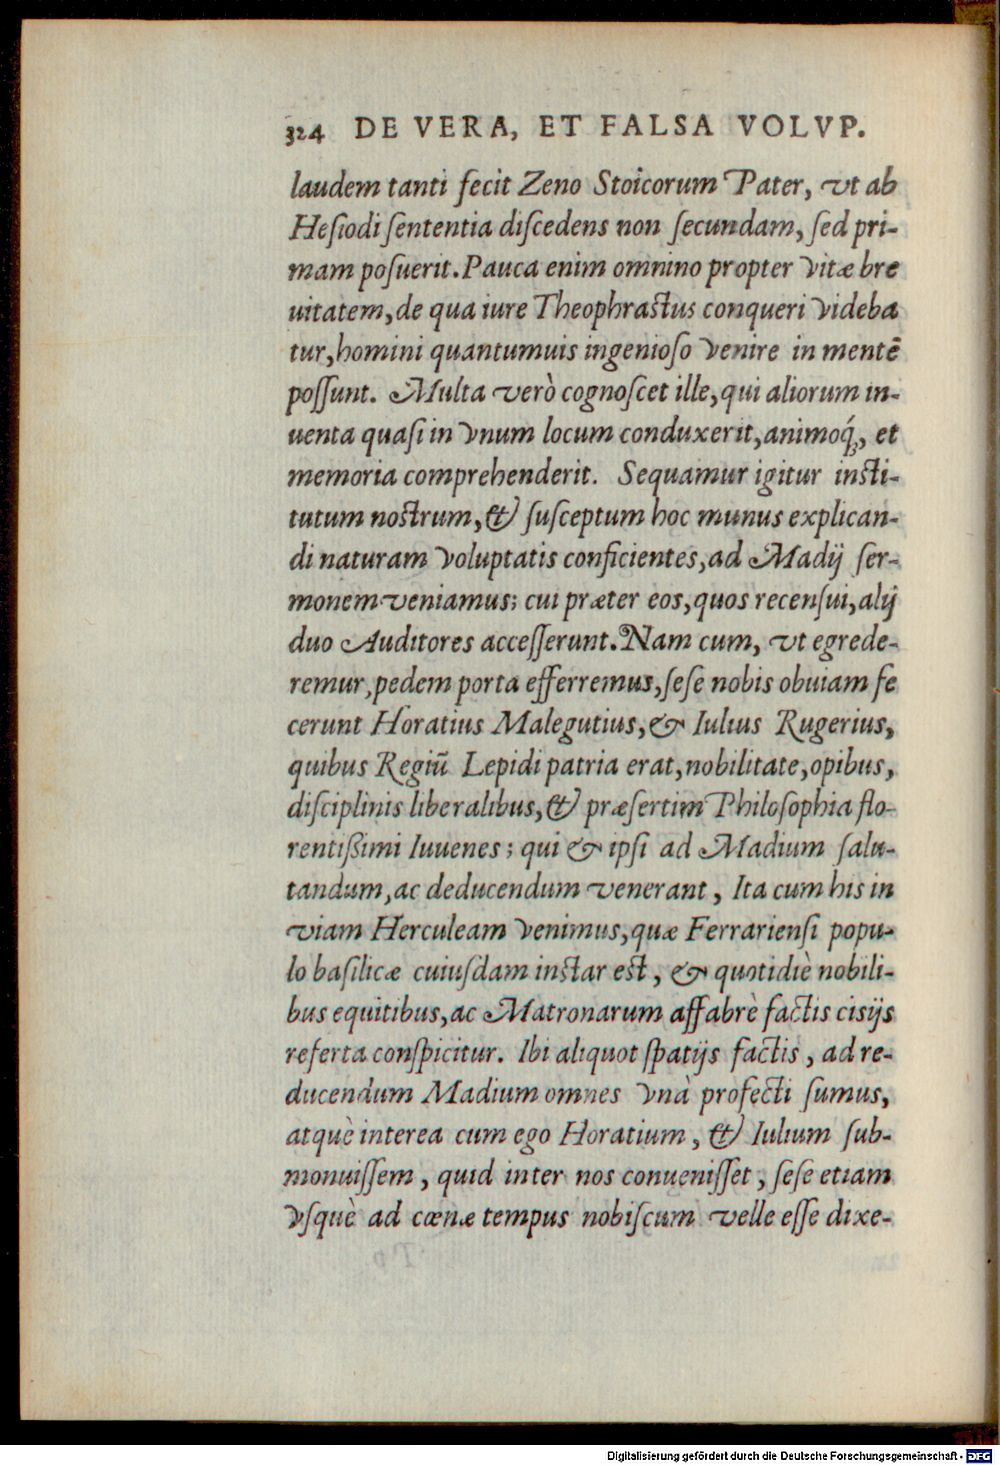 324 DE VERA, ET FALSA VOLVP.
laudem tanti fecit Zeno Stoicorum Pater, vt ab
Hesiodi sententia discedens non secundam, sed pri-
mam posuerit. Pauca enim omnino propter vitæ bre
uitatem, de qua iure Theophrastus conqueri videba
tur, homini quantumuis ingenioso venire in mentē
possunt. Multa verò cognoscet ille, qui aliorum in-
uenta quasi in vnum locum conduxerit, animoq́;, et
memoria comprehenderit. Sequamur igitur insti-
tutum nostrum, & susceptum hoc munus explican-
di naturam voluptatis conficientes, ad Madij ser-
monem veniamus; cui præter eos, quos recensui, alij
duo Auditores accesserunt. Nam cum, vt egrede-
remur, pedem porta efferremus, sese nobis obuiam fe
cerunt Horatius Malegutius, & Iulius Rugerius,
quibus Regiū Lepidi patria erat, nobilitate, opibus,
disciplinis liberalibus, & præsertim Philosophia flo-
rentißimi Iuuenes; qui & ipsi ad Madium salu-
tandum, ac deducendum venerant, Ita cum his in
viam Herculeam venimus, quæ Ferrariensi popu-
lo basilicæ cuiusdam instar est, & quotidiè nobili-
bus equitibus, ac Matronarum affabrè factis cisijs
referta conspicitur. Ibi aliquot spatijs factis, ad re-
ducendum Madium omnes vnà profecti sumus,
atquè interea cum ego Horatium, & Iulium sub-
monuissem, quid inter nos conuenisset, sese etiam
vsquè ad cœnæ tempus nobiscum velle esse dixe-
Digitalisierung gefördert durch die Deutsche Forschungsgemeinschaft - DFG